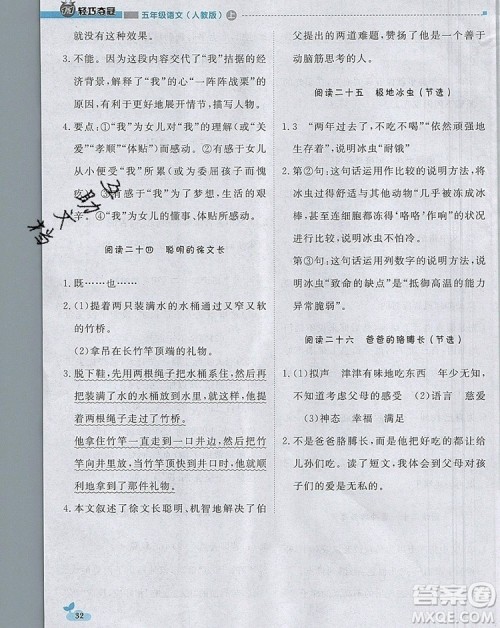 轻巧夺冠
五年级语文（人教版）上
就没有这种效果。
3. 不能去掉。这段内容交待了“我”的经
济背景，为下文的心“一阵阵战栗”的
原因，有利于更好地展开情节，描写人物。
4. 要点：①“我”为女儿对“我”的理解（或“关
爱”“孝顺”“体贴”）而感动。②有感于“我”
力不能为，为不能满足（或为委屈孩子而愧
疚）。③有感于“我”为了梦想，生活的艰
辛。④“我”为女儿的懂事、体贴所感动。
阅读二十四 聪明的徐文长
1. 既……也……
2. （1）提着两只装满水的水桶通过又窄又软
的竹桥。
（2）拿吊在长竹竿顶端的礼物。
3. 脱下鞋，先用两根绳子把水桶系住，然后
再把装满水的水桶放到水里，就这样，他提
着两根绳子走过了竹桥。
他拿住竹竿一直走到一口井边，然后把竹
竿向井里放下去，当竹竿放到和他一样高
时，他顺利地拿到了那件礼物。
4. 本文叙述了徐文长聪明、机智地解决了伯
父提出的两道难题，大人们都称赞他了不
起的事。
阅读二十五 极地冰虫（节选）
1. 3 “两年过去了，不吃不喝”“依旧顽强地
蠕动着”，说明冰虫的耐饿。
2. 第①句：这句话运用作比较的说明方法，
将冰虫与其他冷血动物“几乎僵冻，或冻
得四肢麻木，全身的骨骼‘咯咯’作响”作
对比，说明冰虫抵御寒冷的能力。
第③句：这句话运用列数字的说明方法，
说明“致命的缺点”是“抵御高温的能力
异常脆弱”。
阅读二十六 爸爸的胳膊长（节选）
1. （1）拟声 津津有味地吃东西 年少无知。
（2）表示程度相当高 （2）语言 慈爱
（3）神态 幸福 满足
2. 不是爸爸胳膊长，而是父母把好吃的给
儿孙们吃。读了短文，我体会到父母对孩
子们的爱是无私的。
32
互助文档
答案圈
MXQE.COM